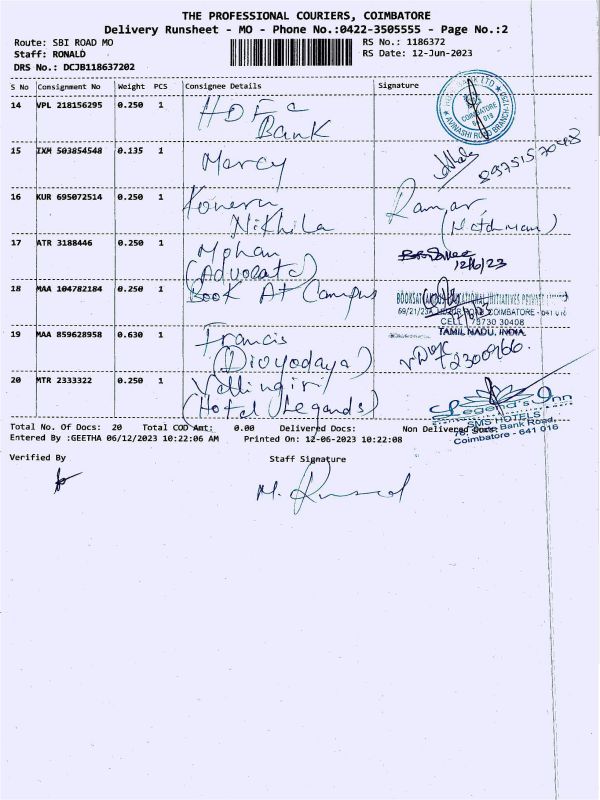 THE PROFESSIONAL COURIERS, COIMBATORE
Delivery Runsheet - MO - Phone No.:0422-3505555 - Page No.:2
Route: SBI ROAD MO
RS No.: 1186372
Staff: RONALD
RS Date: 12-Jun-2023
DRS No.: DCJB118637202
S No Consignment No Weight PCS Consignee Details Signature
14 VPL 218156295 0.250 1 HDFC
Bank
COIMBATORE
AVINASHI ROAD BRANCH
15 IXM 503854548 0.135 1 Marcy
16 KUR 695072514 0.250 1 Koneru
Nikhila
17 ATR 3188446 0.250 1 Mohan
(Advocate)
12/6/23
18 MAA 104782184 0.250 1 Book At Campus
COIMBATORE - 641 018
CELL : 73730 30408
TAMIL NADU, INDIA.
19 MAA 859628958 0.630 1 Francis
(Divyodaya)
20 MTR 2333322 0.250 1 Vellingiri
(Hotel Legands)
Legend's Inn
SMS HOTELS
Bank Road,
Coimbatore - 641 018
Total No. Of Docs: 20 Total COD Amt: 0.00 Delivered Docs: Non Delivered Docs:
Entered By :GEETHA 06/12/2023 10:22:06 AM Printed On: 12-06-2023 10:22:08
Verified By Staff Signature